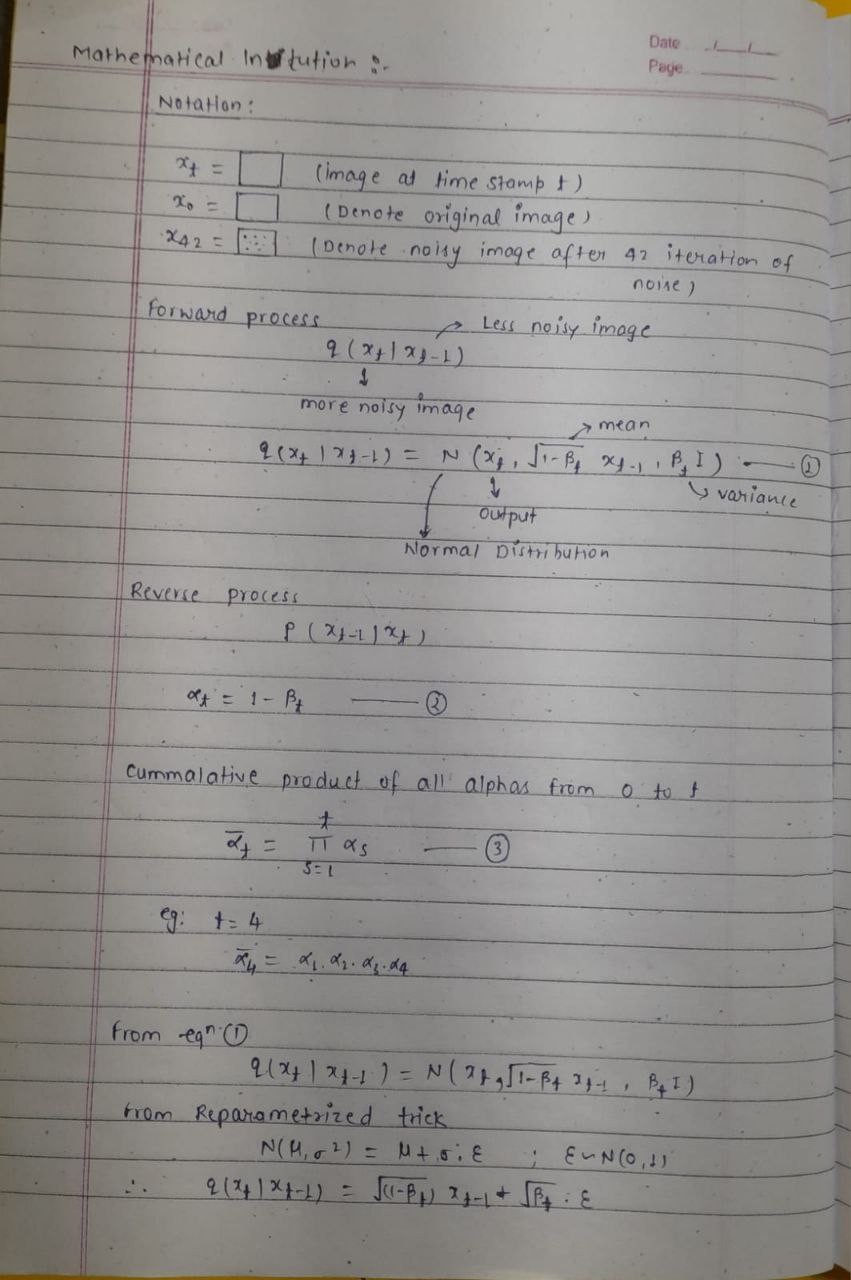 Date
Page
Mathematical Intution :-
Notation :
x_t = (image at time stamp t)
x_0 = (Denote original image)
x_42 = (Denote noisy image after 42 iteration of
noise)
Forward process
Less noisy image
q(x_t | x_t-1)
more noisy image
mean
q(x_t | x_t-1) = N (x_t, √1-β_t x_t-1, β_t I) —— ①
variance
output
Normal Distribution
Reverse process
P(x_t-1 | x_t)
α_t = 1 - β_t —— ②
Cummalative product of all alphas from 0 to t
t
ᾱ_t = π α_s —— ③
s=1
eg: t = 4
ᾱ_4 = α_1. α_2. α_3. α_4
From eqⁿ ①
q(x_t | x_t-1) = N(x_t, √1-β_t x_t-1, β_t I)
From Reparametrized trick
N(μ, σ²) = μ + σ. ε ; ε ~ N(0,1)
∴ q(x_t | x_t-1) = √(1-β_t) x_t-1 + √β_t . ε